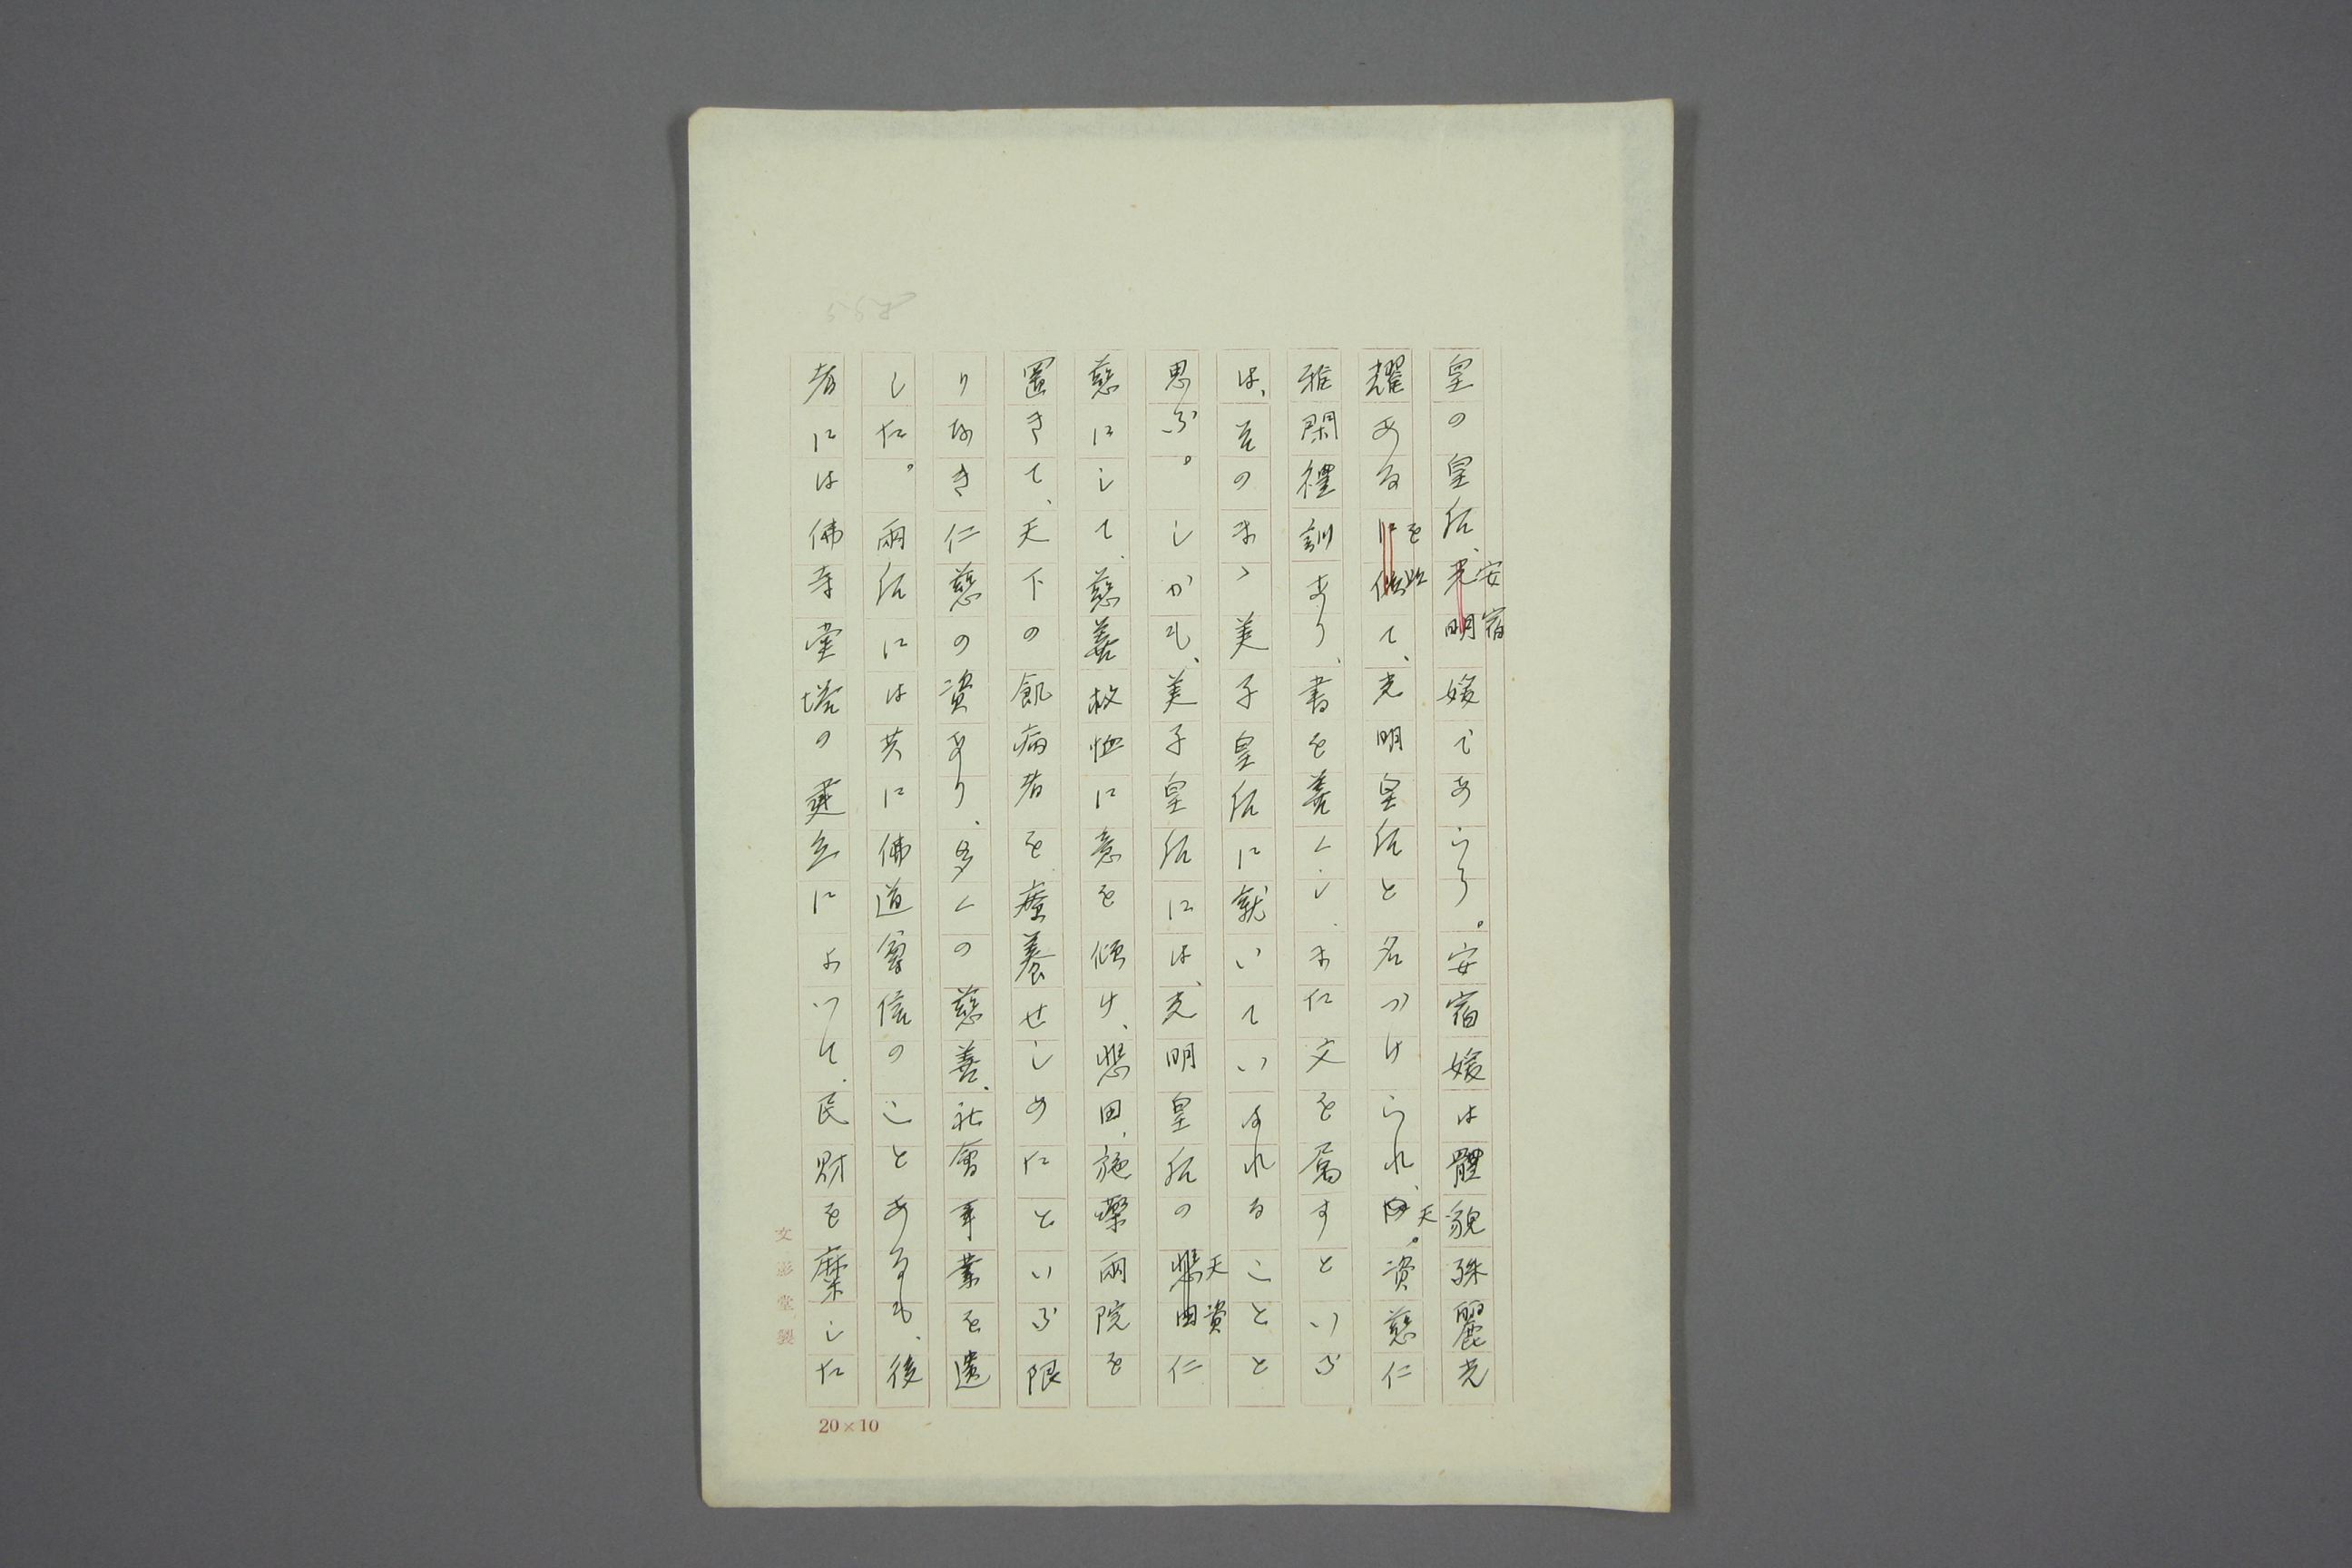 皇の皇后、安宿媛であらう。安宿媛は體貌殊麗光
耀あるを以て、光明皇后と名づけられ、天資慈仁
雅閑禮訓あり、書を善くし、また文を属すといふ
は、そのまゝ美子皇后に就いていはれることと
思ふ。しかも、美子皇后には、光明皇后の天資仁
慈にして、慈善救恤に意を傾け、悲田、施藥兩院を
置きて、天下の飢病者を療養せしめたといふ限
りなき仁慈の資あり、多くの慈善、社會事業を遺
した。兩后には共に佛道尊信のことあるも、後
者には佛寺堂塔の建立によつて、民財を糜した
文影堂製
20×10